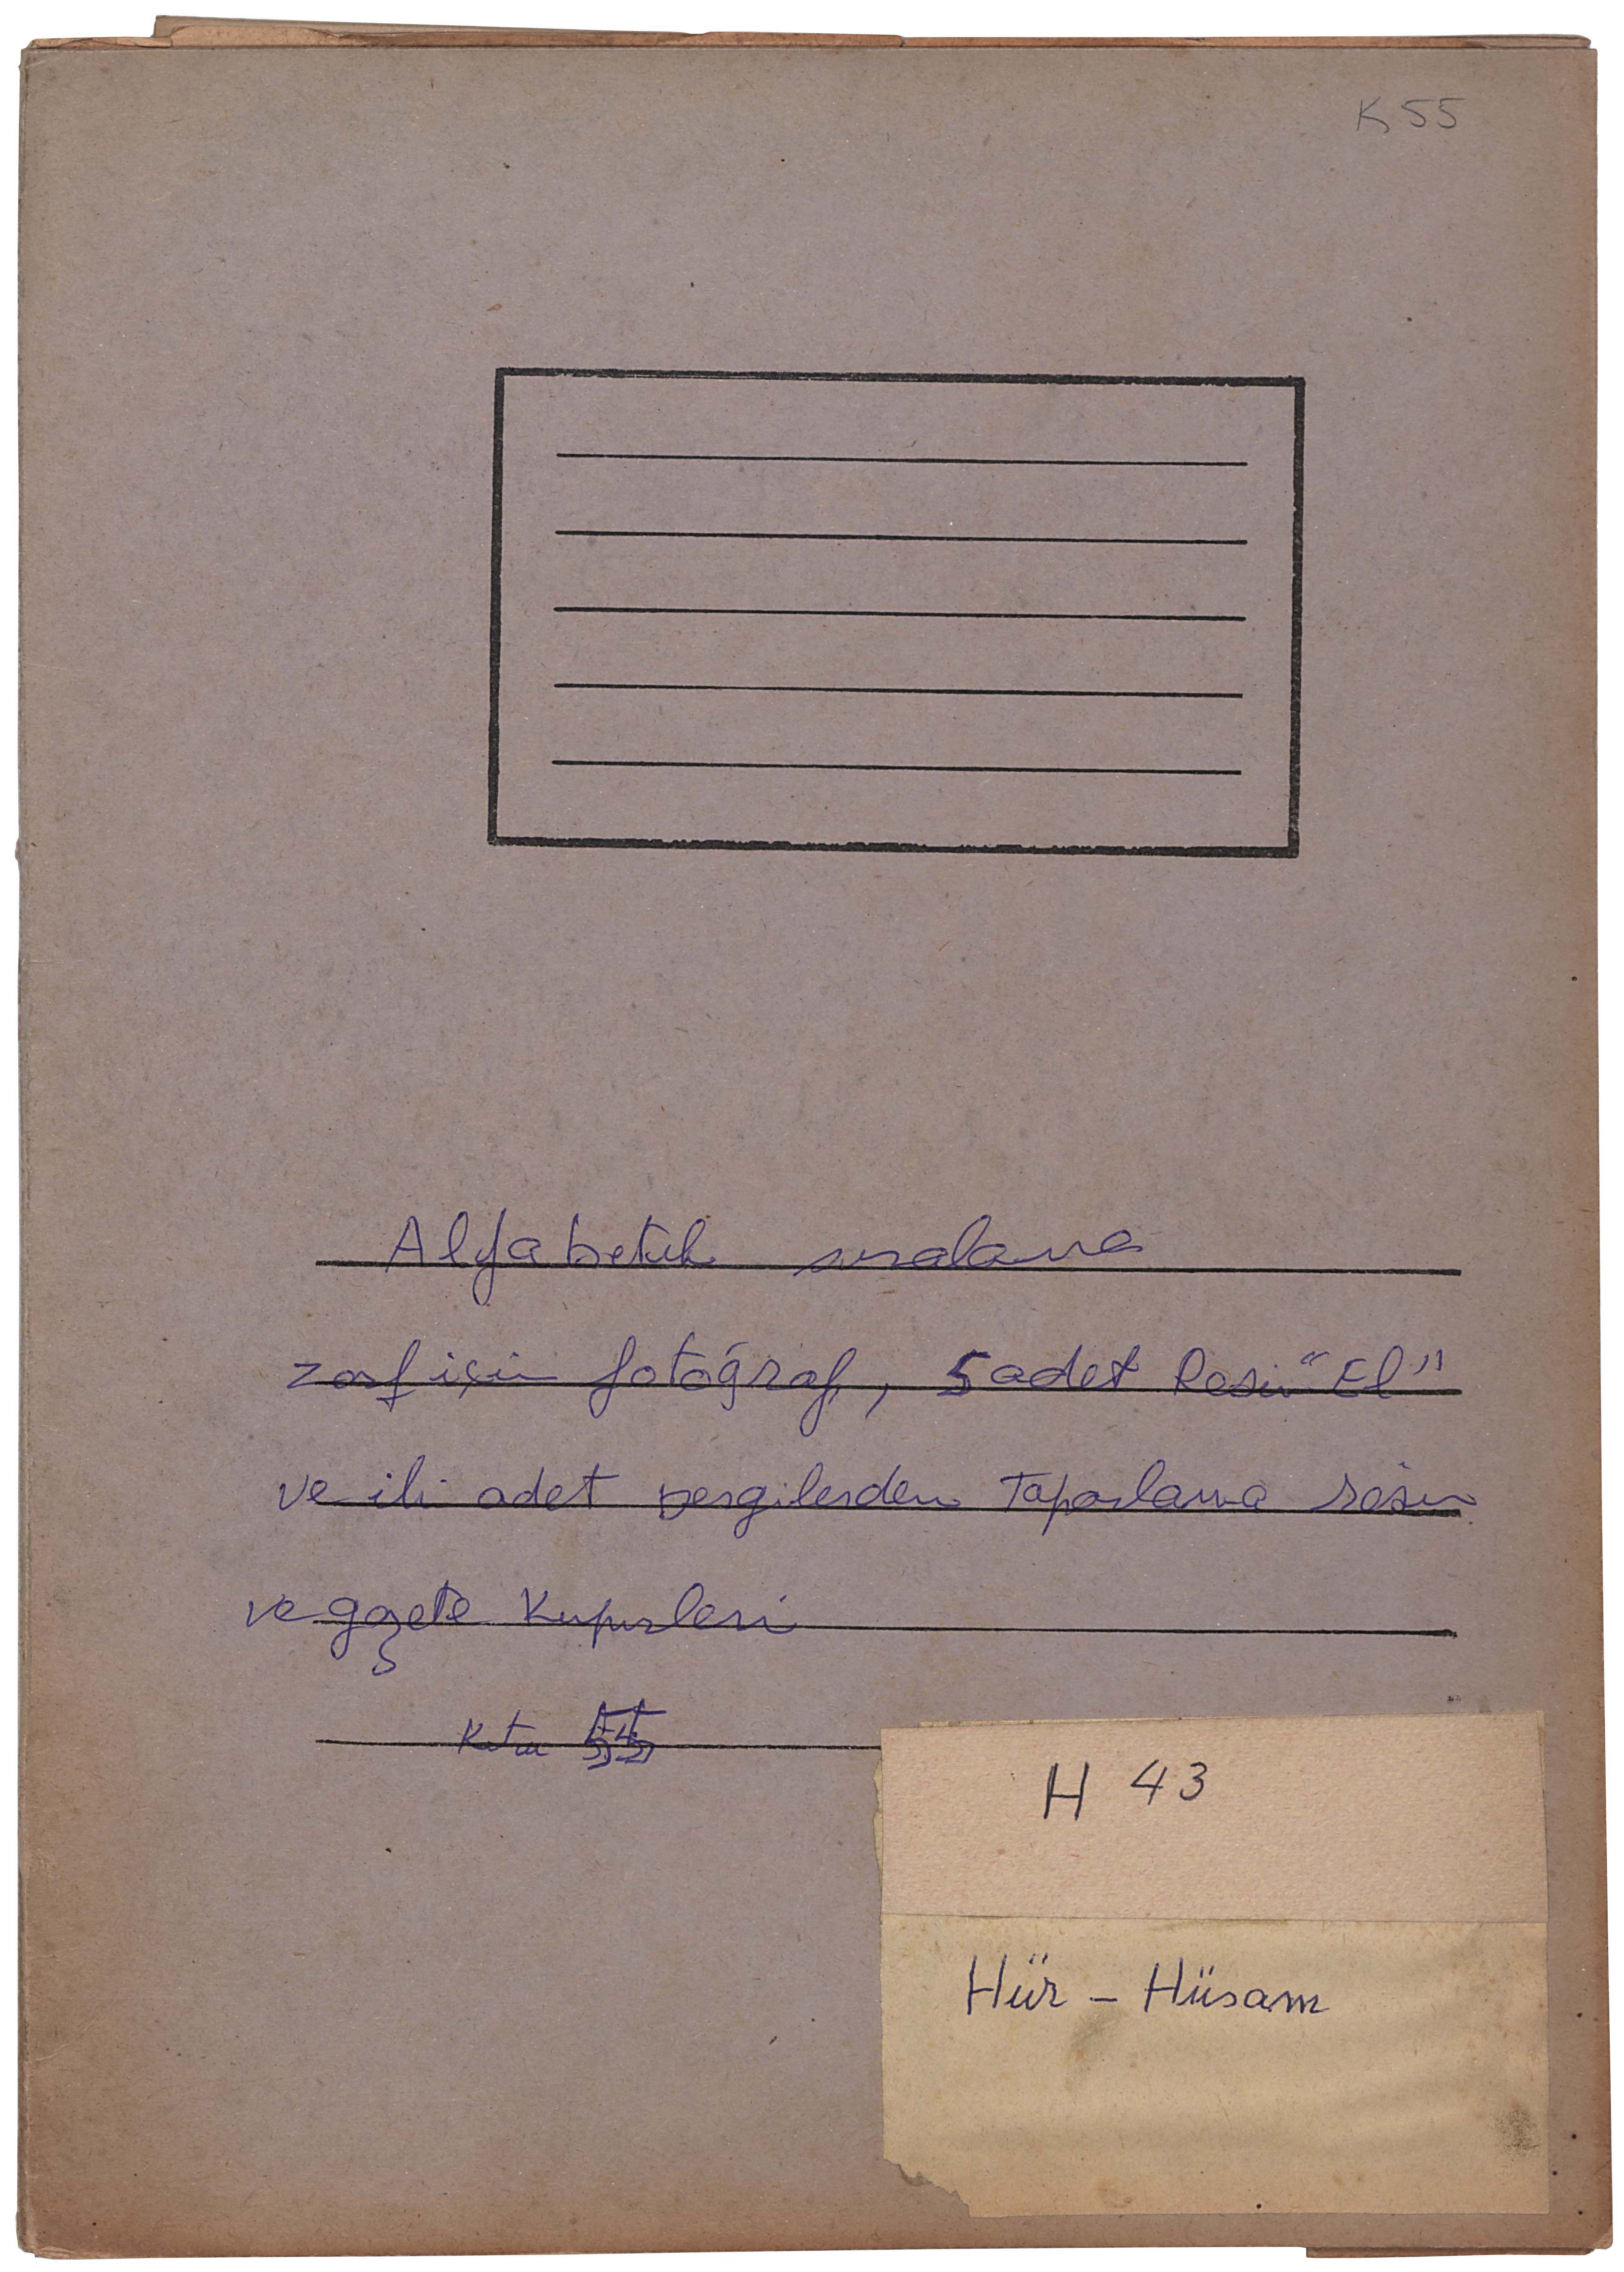 K 55
Alfabetik sıralama
zarf için fotoğraf, 5 adet Resim "El"
ve iki adet Dergilerden Toparlama resim
ve gazete Kupurleri
Kutu 55
H 43
Hür - Hüsam